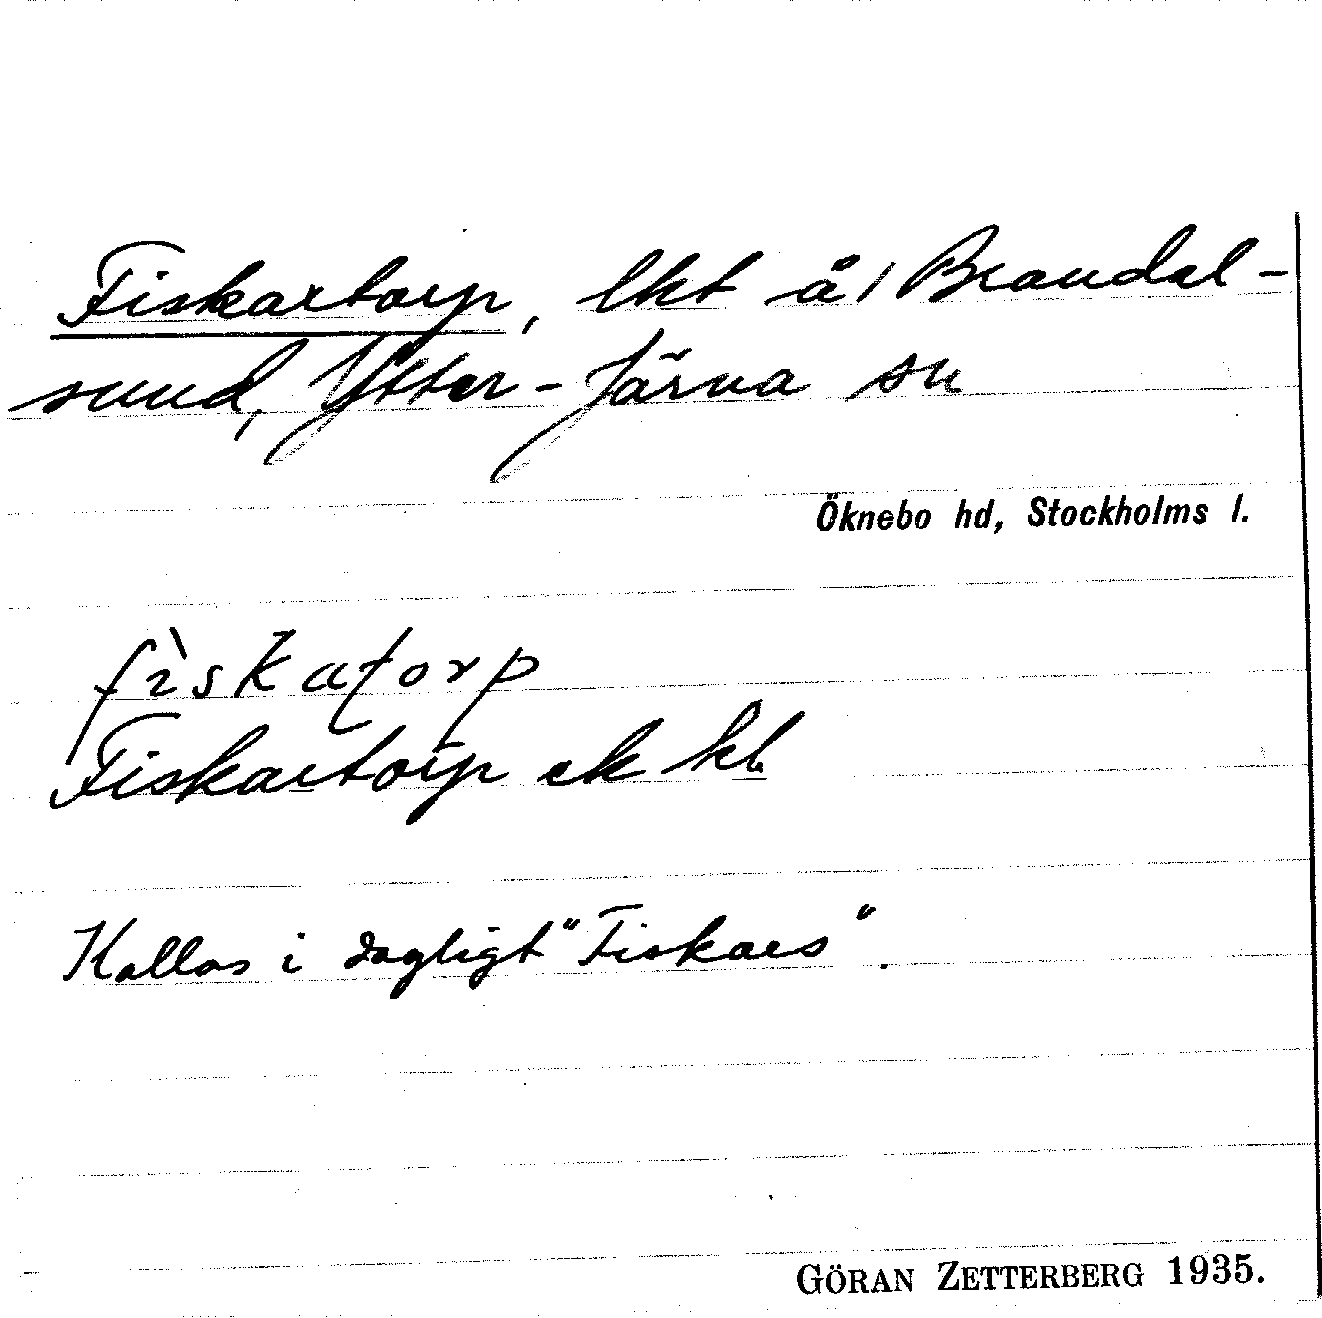 Fiskartorp, lht å/ Brandal-
sund, Ytter-Järna sn
Öknebo hd, Stockholms l.
fìskatorp
Fiskartorp ek kl.
Kallas i dagligt "Fiskars".
GÖRAN ZETTERBERG 1935.